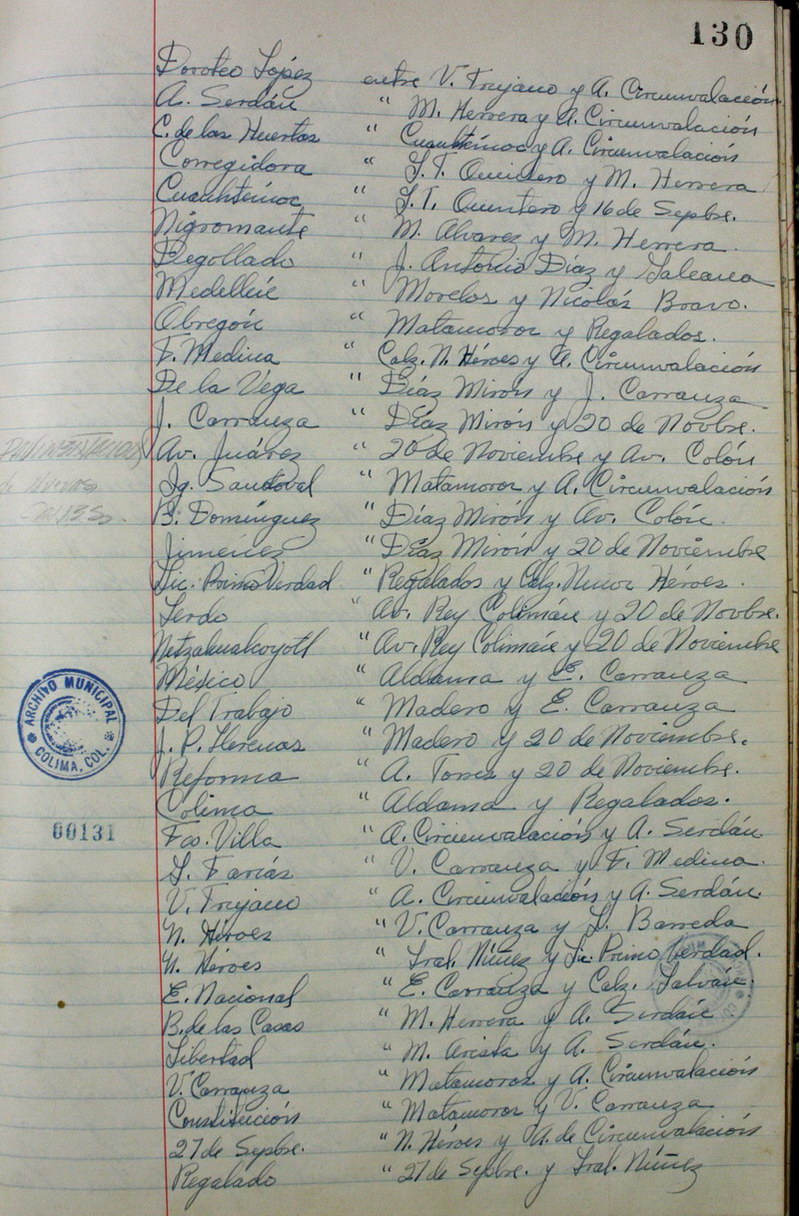 130
Doroteo López entre V. Trujano y A. Circunvalación
A. Serdán " M. Herrera y A. Circunvalación
C. de las Huertas " Cuauhtémoc y A. Circunvalación
Corregidora " S. T. Quintero y M. Herrera
Cuauhtémoc " S. T. Quintero y 16 de Sepbre.
Nigromante " M. Alvarez y M. Herrera.
Degollado " J. Antonio Díaz y Galeana
Medellín " Morelos y Nicolás Bravo.
Obregón " Matamoros y Regalados.
F. Medina " Calz. N. Héroes y A. Circunvalación
De la Vega " Díaz Mirón y J. Carranza
J. Carranza " Díaz Mirón y 20 de Novbre.
Av. Juárez " 20 de Noviembre y Av. Colón
Ig. Sandoval " Matamoros y A. Circunvalación
B. Domínguez " Díaz Mirón y Av. Colón.
Jiménez " Díaz Mirón y 20 de Noviembre
Lic. Primo Verdad " Regalados y Calz. Héroes.
Lerdo " Av. Rey Colimán y 20 de Novbre.
Netzahualcoyotl " Av. Rey Colimán y 20 de Noviembre
México " Aldama y E. Carranza
Del Trabajo " Madero y E. Carranza
J. P. Llerenas " Madero y 20 de Noviembre.
Reforma " A. Torres y 20 de Noviembre.
Colima " Aldama y Regalados.
Fco. Villa " A. Circunvalación y A. Serdán
G. Farías " V. Carranza y F. Medina.
V. Trujano " A. Circunvalación y A. Serdán.
N. Héroes " V. Carranza y G. Barreda
N. Héroes " Gral. Núñez y Lic. Primo Verdad.
E. Nacional " E. Carranza y Calz. Galván.
B. de las Casas " M. Herrera y A. Serdán
Libertad " M. Arista y A. Serdán.
V. Carranza " Matamoros y A. Circunvalación
Constitución " Matamoros y V. Carranza
27 de Sepbre. " N. Héroes y A. de Circunvalación
Regalado " 27 de Sepbre. y Gral. Núñez
de Nuevas
ARCHIVO MUNICIPAL
COLIMA, COL.
00131